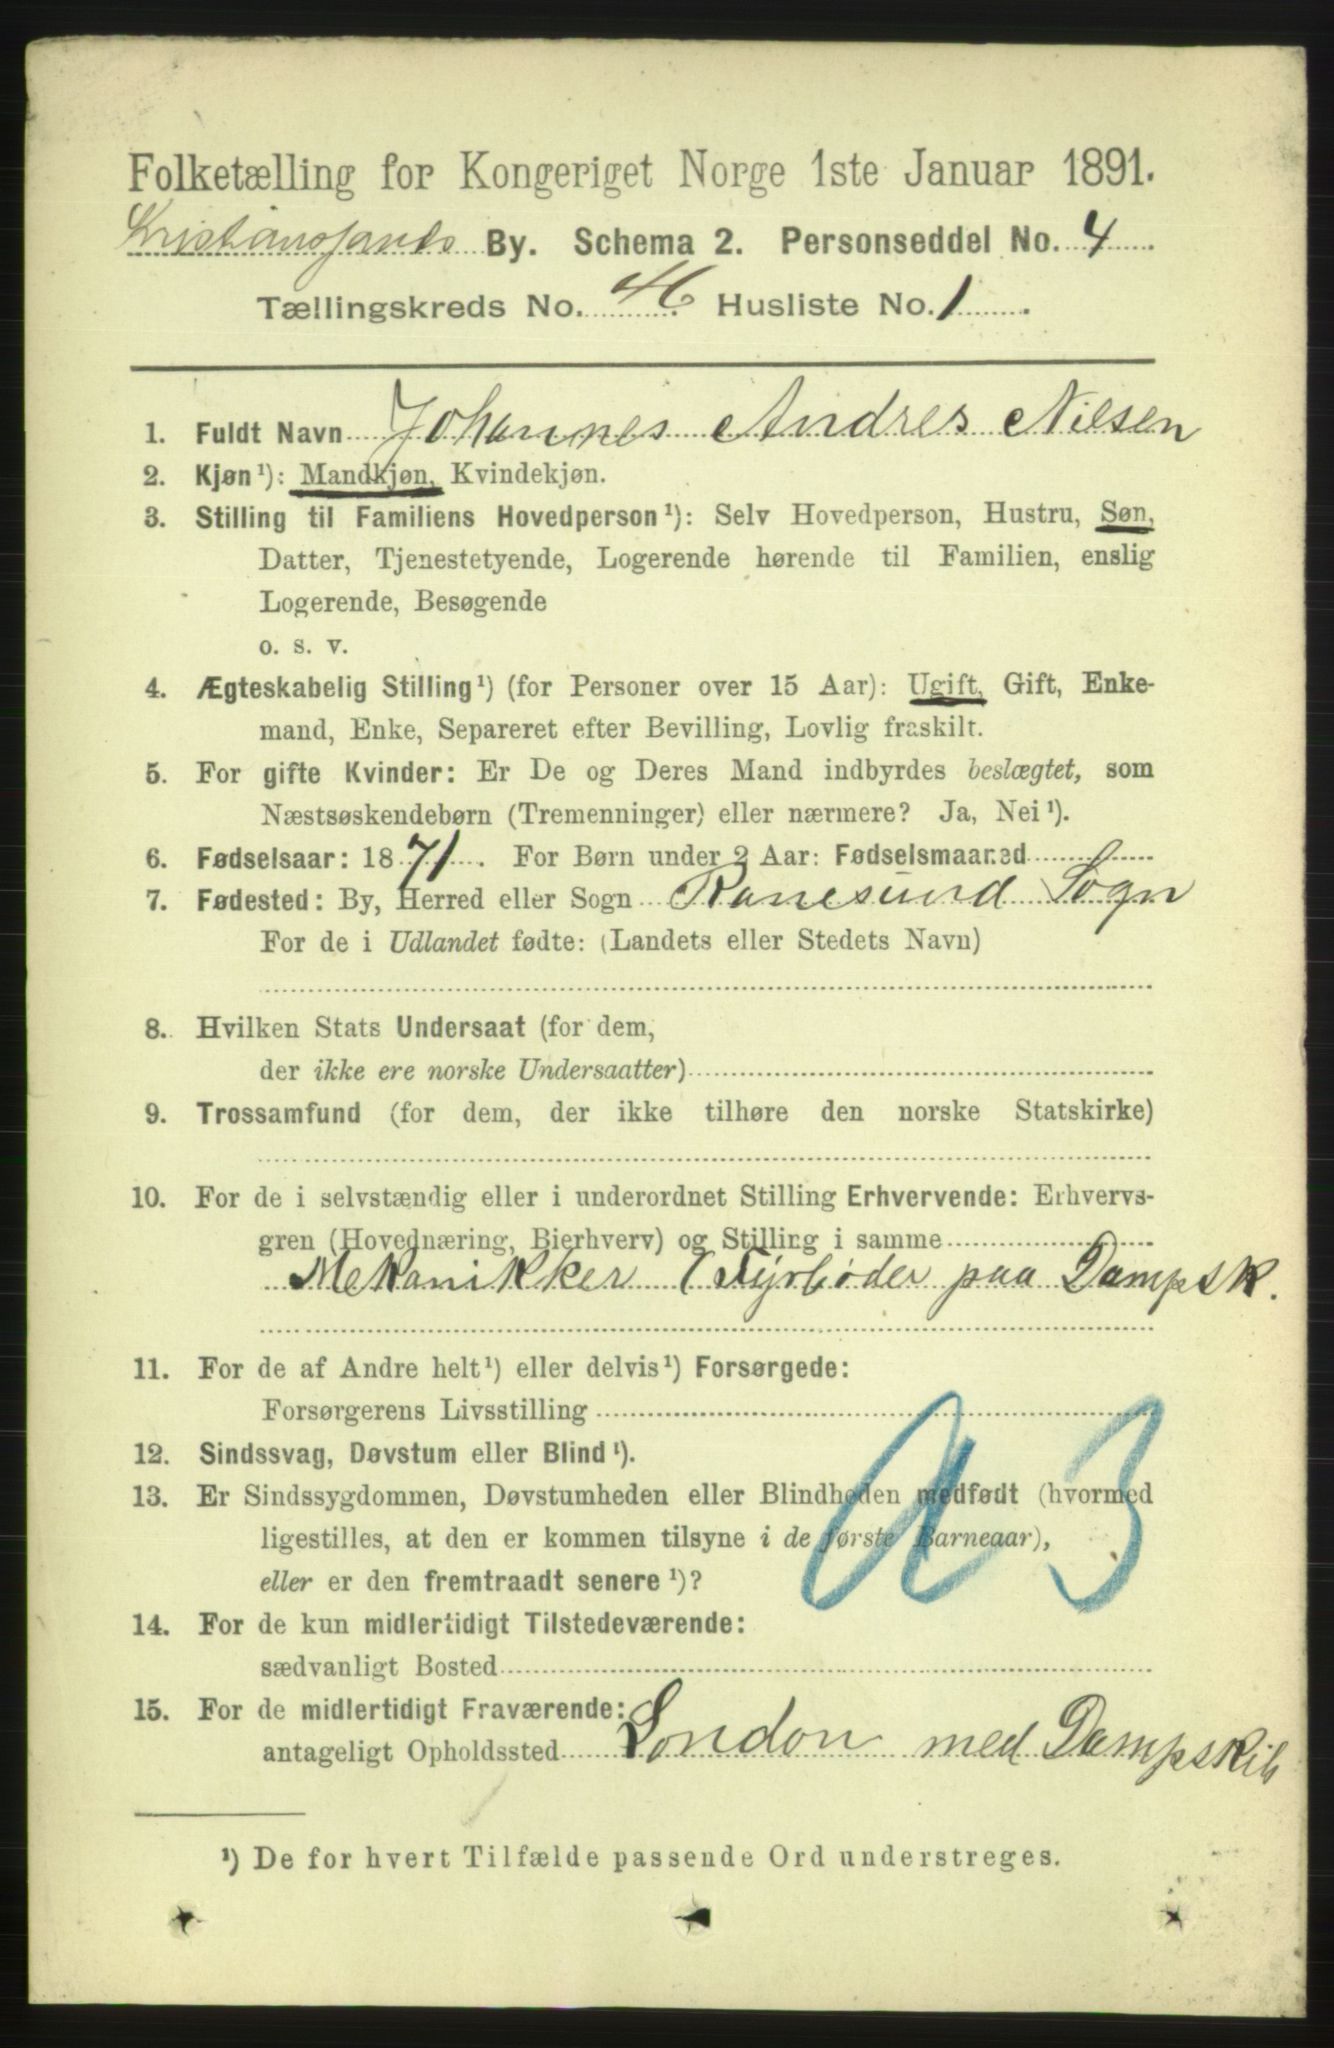 Folketælling for Kongeriget Norge 1ste Januar 1891.
Kristianssands By. Schema 2. Personseddel No. 4
Tællingskreds No. 46 Husliste No. 1
1. Fuldt Navn Johannes Andres Nilsen
2. Kjøn¹): Mandkjøn, Kvindekjøn.
3. Stilling til Familiens Hovedperson¹): Selv Hovedperson, Hustru, Søn,
Datter, Tjenestetyende, Logerende hørende til Familien, enslig
Logerende, Besøgende
o. s. v.
4. Ægteskabelig Stilling¹) (for Personer over 15 Aar): Ugift, Gift, Enke-
mand, Enke, Separeret efter Bevilling, Lovlig fraskilt.
5. For gifte Kvinder: Er De og Deres Mand indbyrdes beslægtet, som
Næstsøskendebørn (Tremenninger) eller nærmere? Ja, Nei¹).
6. Fødselsaar: 1871. For Børn under 2 Aar: Fødselsmaaned
7. Fødested: By, Herred eller Sogn Ranesund Sogn
For de i Udlandet fødte: (Landets eller Stedets Navn)
8. Hvilken Stats Undersaat (for dem,
der ikke ere norske Undersaatter)
9. Trossamfund (for dem, der ikke tilhøre den norske Statskirke)
10. For de i selvstændig eller i underordnet Stilling Erhvervende: Erhvervs-
gren (Hovednæring, Bierhverv) og Stilling i samme
Mekanikker (Fyrbøder paa Dampsk.
11. For de af Andre helt¹) eller delvis¹) Forsørgede:
Forsørgerens Livsstilling
12. Sindssvag, Døvstum eller Blind¹).
13. Er Sindssygdommen, Døvstumheden eller Blindheden medfødt (hvormed
ligestilles, at den er kommen tilsyne i de første Barneaar),
eller er den fremtraadt senere¹)?
14. For de kun midlertidigt Tilstedeværende:
sædvanligt Bosted
15. For de midlertidigt Fraværende:
antageligt Opholdssted London med Dampskib
¹) De for hvert Tilfælde passende Ord understreges.